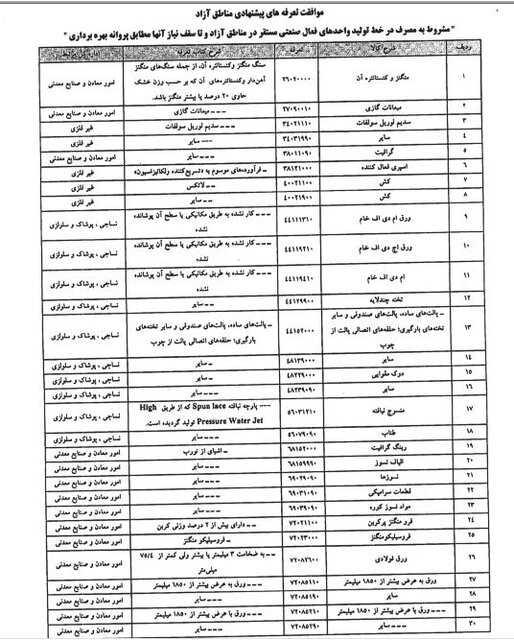 موافقت تعرفه های پیشنهادی مناطق آزاد
"مشروط به مصرف در خط تولید واحدهای فعال صنعتی مستقر در مناطق آزاد و تا سقف نیاز آنها مطابق پروانه بهره برداری"
ردیف شرح کالا تعرفه شرح تعرفه
۱ منگنز و کنسانتره آن ۲۶۰۲۰۰۰۰ سنگ منگنز وکنسانتره آن، از جمله سنگ‌های منگنز آهن‌دار وکنسانتره‌های آن که بر حسب وزن خشک حاوی ۲۰ درصد یا بیشتر منگنز باشد. امور معادن و صنایع معدنی
۲ میعانات گازی ۲۷۰۹۰۰۱۰ --- میعانات گازی امور معادن و صنایع معدنی
۳ سدیم لوریل سولفات ۳۴۰۲۱۱۱۰ --- سدیم لوریل سولفات غیر فلزی
۴ سایر ۳۴۰۳۱۹۹۰ ---- سایر غیر فلزی
۵ گرافیت ۳۸۰۱۱۰۹۰ --- سایر امور معادن و صنایع معدنی
۶ اسپری فعال کننده ۳۸۱۲۱۰۰۰ - فرآورده‌های موسوم به «تسریع‌کننده ولکانیزاسیون» غیر فلزی
۷ کش ۴۰۰۲۱۱۰۰ -- لاتکس غیر فلزی
۸ کش ۴۰۰۲۱۹۰۰ -- سایر غیر فلزی
۹ ورق ام دی اف خام ۴۴۱۱۱۳۱۰ --- کار نشده به طریق مکانیکی یا سطح آن پوشانده نشده نساجی ، پوشاک و سلولزی
۱۰ ورق اچ دی اف خام ۴۴۱۱۹۲۱۰ --- کار نشده به طریق مکانیکی یا سطح آن پوشانده نشده نساجی ، پوشاک و سلولزی
۱۱ ام دی اف خام ۴۴۱۱۹۴۱۰ --- کار نشده به طریق مکانیکی یا سطح آن پوشانده نشده نساجی ، پوشاک و سلولزی
۱۲ تخته چندلایه ۴۴۱۲۹۹۰۰ --- سایر نساجی ، پوشاک و سلولزی
۱۳ - پالت‌های ساده، پالت‌های صندوقی و سایر تخته‌های بارگیری؛ حلقه‌های اتصالی پالت از چوب ۴۴۱۵۲۰۰۰ - پالت‌های ساده، پالت‌های صندوقی و سایر تخته‌های بارگیری؛ حلقه‌های اتصالی پالت از چوب نساجی ، پوشاک و سلولزی
۱۴ سایر ۴۸۱۳۹۰۰۰ - سایر نساجی ، پوشاک و سلولزی
۱۵ دوک مقوایی ۴۸۲۲۹۰۰۰ - سایر نساجی ، پوشاک و سلولزی
۱۶ سایر ۴۸۲۳۹۰۹۰ --- سایر نساجی ، پوشاک و سلولزی
۱۷ منسوج نبافته ۵۶۰۳۱۲۱۰ --- پارچه نبافته Spun lace که از طریق High Pressure Water Jet تولید گردیده است. نساجی ، پوشاک و سلولزی
۱۸ طناب ۵۶۰۷۹۰۹۰ --- سایر نساجی ، پوشاک و سلولزی
۱۹ رینگ گرافیت ۶۸۱۵۲۰۰۰ - اشیای از تورب امور معادن و صنایع معدنی
۲۰ الیاف نسوز ۶۸۱۵۹۹۹۰ --- سایر امور معادن و صنایع معدنی
۲۱ نسوزها ۶۹۰۲۹۰۹۰ --- سایر امور معادن و صنایع معدنی
۲۲ قطعات سرامیکی ۶۹۰۳۱۰۹۰ --- سایر امور معادن و صنایع معدنی
۲۳ مواد نسوز کوره ۶۹۰۳۹۰۹۰ --- سایر امور معادن و صنایع معدنی
۲۴ فرو منگنز پرکربن ۷۲۰۲۱۱۰۰ -- دارای بیش از ۲ درصد وزنی کربن امور معادن و صنایع معدنی
۲۵ فروسیلیکومنگنز ۷۲۰۲۳۰۰۰ - فروسیلیکو منگنز امور معادن و صنایع معدنی
۲۶ ورق فولادی ۷۲۰۸۲۶۰۰ -- به ضخامت ۳ میلیمتر یا بیشتر ولی کمتر از ۴/۷۵ میلی‌متر امور معادن و صنایع معدنی
۲۷ ورق به عرض بیشتر از ۱۸۵۰ میلیمتر ۷۲۰۸۵۱۱۰ --- ورق به عرض بیشتر از ۱۸۵۰ میلیمتر امور معادن و صنایع معدنی
۲۸ سایر ۷۲۰۸۵۱۹۰ --- سایر امور معادن و صنایع معدنی
۲۹ --- ورق با عرض بیشتر از ۱۸۵۰ میلیمتر ۷۲۰۸۵۲۱۰ --- ورق با عرض بیشتر از ۱۸۵۰ میلیمتر امور معادن و صنایع معدنی
۳۰ --- سایر ۷۲۰۸۵۲۹۰ --- سایر امور معادن و صنایع معدنی